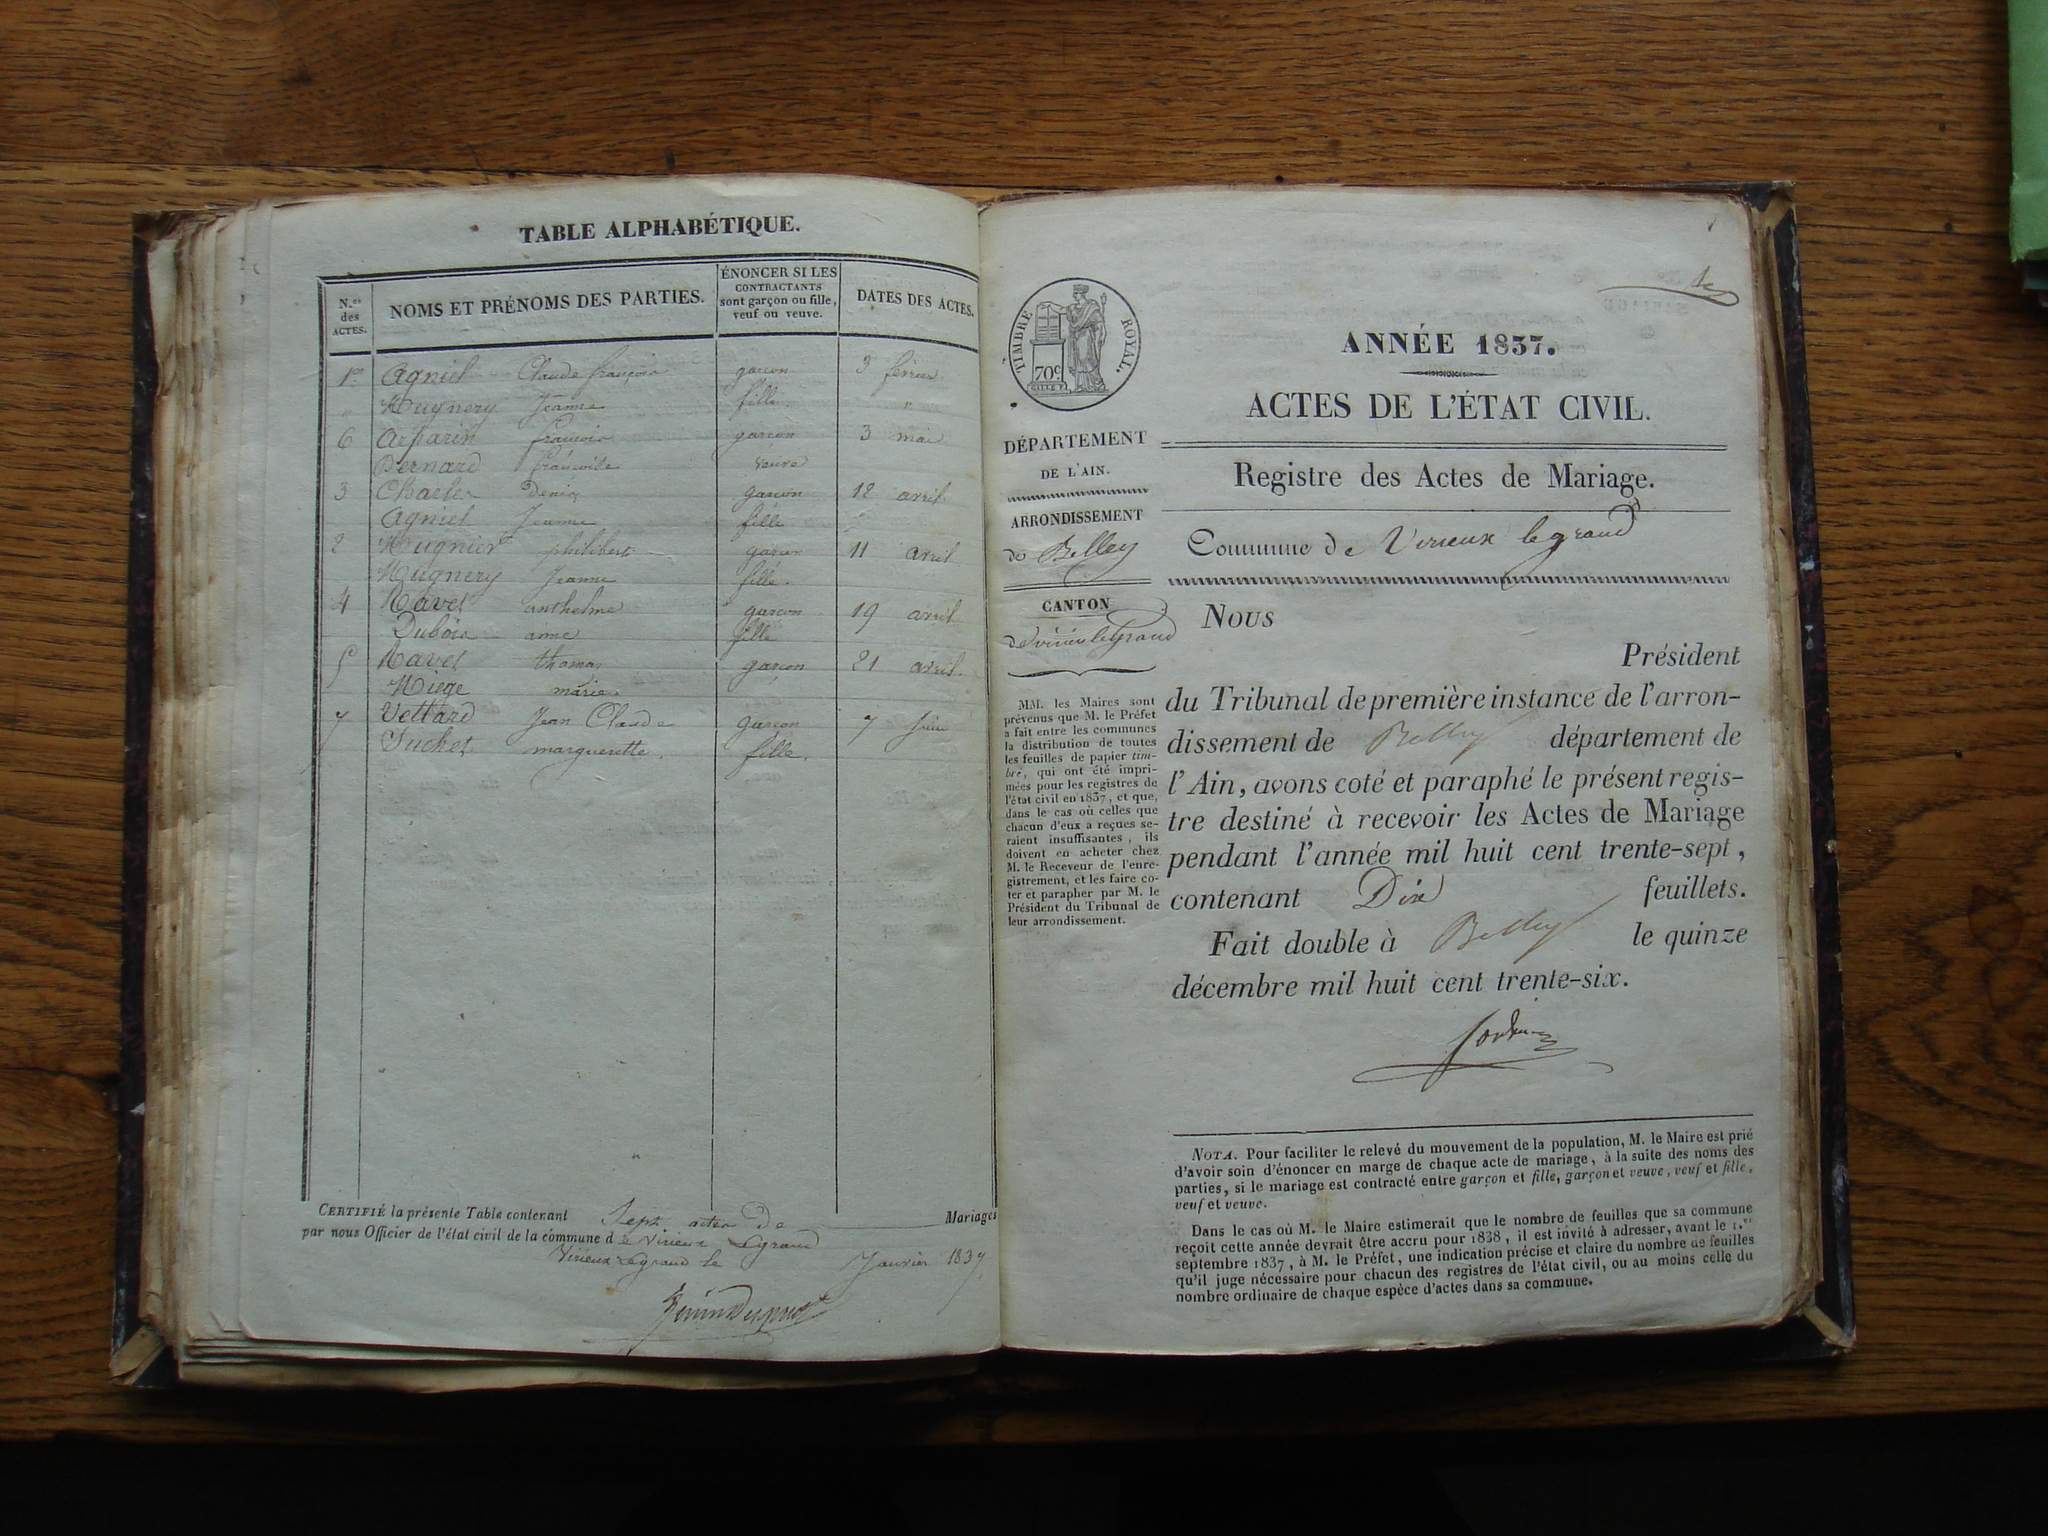 TABLE ALPHABÉTIQUE.
N.os des ACTES.
NOMS ET PRÉNOMS DES PARTIES.
ÉNONCER SI LES CONTRACTANTS sont garçon ou fille, veuf ou veuve.
DATES DES ACTES.
1er Agniel Claude françois garçon 3 février
" Mugnery Jeanne fille "
6 Arparin françois garçon 3 mai
Bernard françoise veuve
3 Charles Denis garçon 12 avril
Agniel Jeanne fille
2 Mugnier philibert garçon 11 avril
Mugnery Jeanne fille.
4 Ravet anthelme garçon 19 avril
Dubois anne fille
5 Ravet thomas garçon 21 avril.
Miège marie.
7 Vettard Jean Claude garçon 7 Juin
Suchet marguerette. fille.
CERTIFIÉ la présente Table contenant Sept actes de Mariages
par nous Officier de l'état civil de la commune de Virieux Legrand
Virieux Legrand le 7 Janvier 183
TIMBRE ROYAL.
70c
DÉPARTEMENT
DE L'AIN.
ARRONDISSEMENT
de Belley
CANTON
de virieu le Grand
MM. les Maires sont
prévenus que M. le Préfet
a fait entre les communes
la distribution de toutes
les feuilles de papier tim-
bré, qui ont été impri-
mées pour les registres de
l'état civil en 1837, et que,
dans le cas où celles que
chacun d'eux a reçues se-
raient insuffisantes, ils
doivent en acheter chez
M. le Receveur de l'enre-
gistrement, et les faire co-
ter et parapher par M. le
Président du Tribunal de
leur arrondissement.
ANNÉE 1837.
ACTES DE L'ÉTAT CIVIL.
Registre des Actes de Mariage.
Commune de Virieux legrand
Nous
Président
du Tribunal de première instance de l'arron-
dissement de Belley département de
l'Ain, avons coté et paraphé le présent regis-
tre destiné à recevoir les Actes de Mariage
pendant l'année mil huit cent trente-sept,
contenant Dix feuillets.
Fait double à Belley le quinze
décembre mil huit cent trente-six.
NOTA. Pour faciliter le relevé du mouvement de la population, M. le Maire est prié
d'avoir soin d'énoncer en marge de chaque acte de mariage, à la suite des noms des
parties, si le mariage est contracté entre garçon et fille, garçon et veuve, veuf et fille,
veuf et veuve.
Dans le cas où M. le Maire estimerait que le nombre de feuilles que sa commune
reçoit cette année devrait être accru pour 1838, il est invité à adresser, avant le 1.er
septembre 1837, à M. le Préfet, une indication précise et claire du nombre de feuilles
qu'il juge nécessaire pour chacun des registres de l'état civil, ou au moins celle du
nombre ordinaire de chaque espèce d'actes dans sa commune.